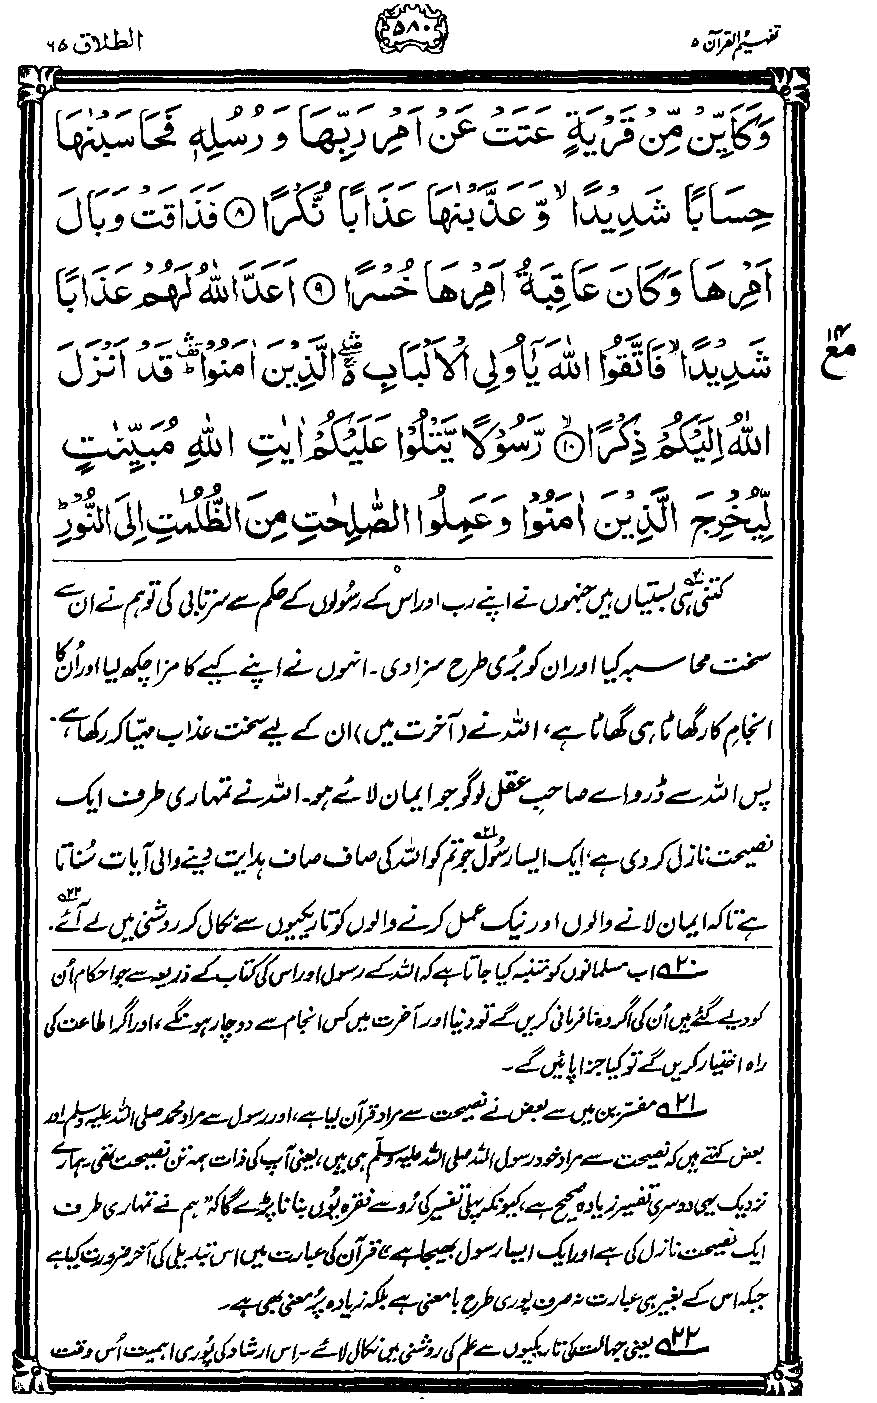 تفہیم القرآن ۵
۵۸۰
الطلاق ۶۵
وَكَاَيِّنْ مِّنْ قَرْيَةٍ عَتَتْ عَنْ اَمْرِ رَبِّهَا وَ رُسُلِهٖ فَحَاسَبْنٰهَا
حِسَابًا شَدِيْدًا ۙ وَّ عَذَّبْنٰهَا عَذَابًا نُّكْرًا ﴿۸﴾ فَذَاقَتْ وَبَالَ
اَمْرِهَا وَ كَانَ عَاقِبَةُ اَمْرِهَا خُسْرًا ﴿۹﴾ اَعَدَّ اللّٰهُ لَهُمْ عَذَابًا
شَدِيْدًا ۙ فَاتَّقُوا اللّٰهَ يٰۤاُولِي الْاَلْبَابِ الَّذِيْنَ اٰمَنُوْا قَدْ اَنْزَلَ
اللّٰهُ اِلَيْكُمْ ذِكْرًا ﴿۱۰﴾ رَّسُوْلًا يَّتْلُوْا عَلَيْكُمْ اٰيٰتِ اللّٰهِ مُبَيِّنٰتٍ
لِّيُخْرِجَ الَّذِيْنَ اٰمَنُوْا وَعَمِلُوا الصّٰلِحٰتِ مِنَ الظُّلُمٰتِ اِلَى النُّوْرِ ؕ
کتنی۲۰ ہی بستیاں ہیں جنہوں نے اپنے رب اور اس کے رسُولوں کے حکم سے سرتابی کی تو ہم نے ان سے
سخت محاسبہ کیا اور ان کو بُری طرح سزا دی۔ انہوں نے اپنے کیے کا مزا چکھ لیا اور اُن کا
انجامِ کار گھاٹا ہی گھاٹا ہے، اللہ نے (آخرت میں) ان کے لیے سخت عذاب مہیّا کر رکھا ہے۔
پس اللہ سے ڈرو اے صاحبِ عقل لوگو جو ایمان لائے ہو۔ اللہ نے تمہاری طرف ایک
نصیحت نازل کر دی ہے، ایک ایسا رسُول۲۱ جو تم کو اللہ کی صاف صاف ہدایت دینے والی آیات سُناتا
ہے تاکہ ایمان لانے والوں اور نیک عمل کرنے والوں کو تاریکیوں سے نکال کر روشنی میں لے آئے۲۲۔
۲۰ اب مسلمانوں کو متنبہ کیا جاتا ہے کہ اللہ کے رسول اور اس کی کتاب کے ذریعہ سے جو احکام اُن
کو دیے گئے ہیں اُن کی اگر وہ نافرمانی کریں گے تو دنیا اور آخرت میں کس انجام سے دوچار ہونگے، اور اگر اطاعت کی
راہ اختیار کریں گے تو کیا جزا پائیں گے۔
۲۱ مفسّرین میں سے بعض نے نصیحت سے مراد قرآن لیا ہے، اور رسول سے مراد محمد صلی اللہ علیہ وسلم، اور
بعض کہتے ہیں کہ نصیحت سے مراد خود رسول اللہ صلی اللہ علیہ وسلّم ہی ہیں، یعنی آپ کی ذات ہمہ تن نصیحت تھی۔ ہمارے
نزدیک یہی دوسری تفسیر زیادہ صحیح ہے، کیونکہ پہلی تفسیر کی رُو سے فقرہ یُوں بنانا پڑے گا کہ "ہم نے تمہاری طرف
ایک نصیحت نازل کی ہے اور ایک ایسا رسول بھیجا ہے"۔ قرآن کی عبارت میں اس تبدیلی کی آخر ضرورت کیا ہے
جبکہ اس کے بغیر ہی عبارت نہ صرف پوری طرح بامعنی ہے بلکہ زیادہ پُر معنی بھی ہے۔
۲۲ یعنی جہالت کی تاریکیوں سے علم کی روشنی میں نکال لائے۔ اس ارشاد کی پُوری اہمیت اُس وقت